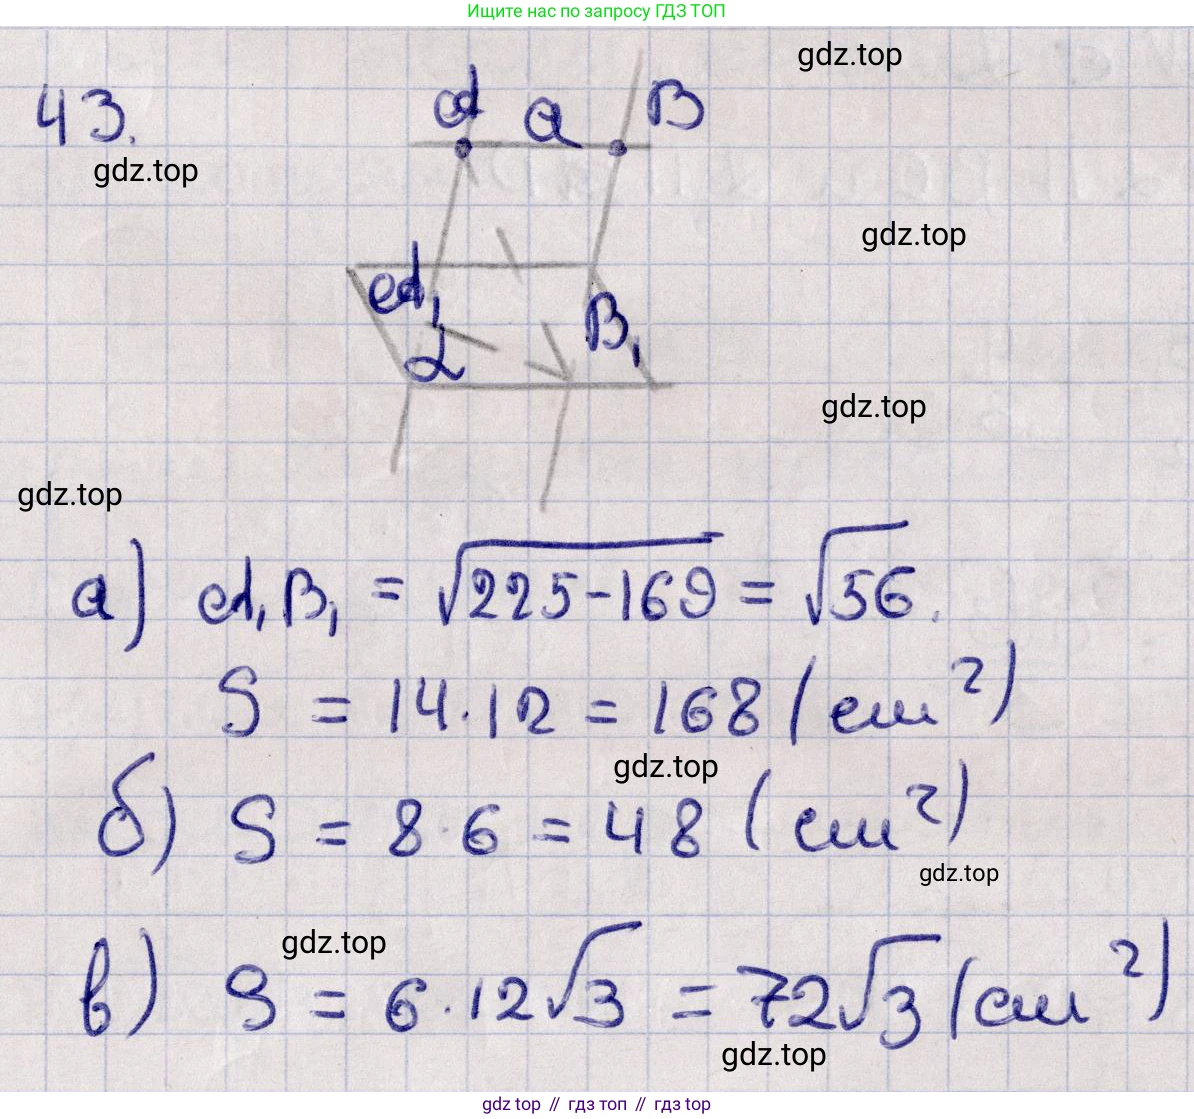 Ищите нас по запросу ГДЗ ТОП
gdz.top
43.
A a B
gdz.top
gdz.top
A₁
B₁
α
gdz.top
gdz.top
а) A₁B₁ = √225-169 = √56.
S = 14·12 = 168 (см²)
gdz.top
б) S = 8·6 = 48 (см²)
gdz.top
gdz.top
в) S = 6·12√3 = 72√3 (см²)
gdz.top
gdz.top // гдз топ // гдз top